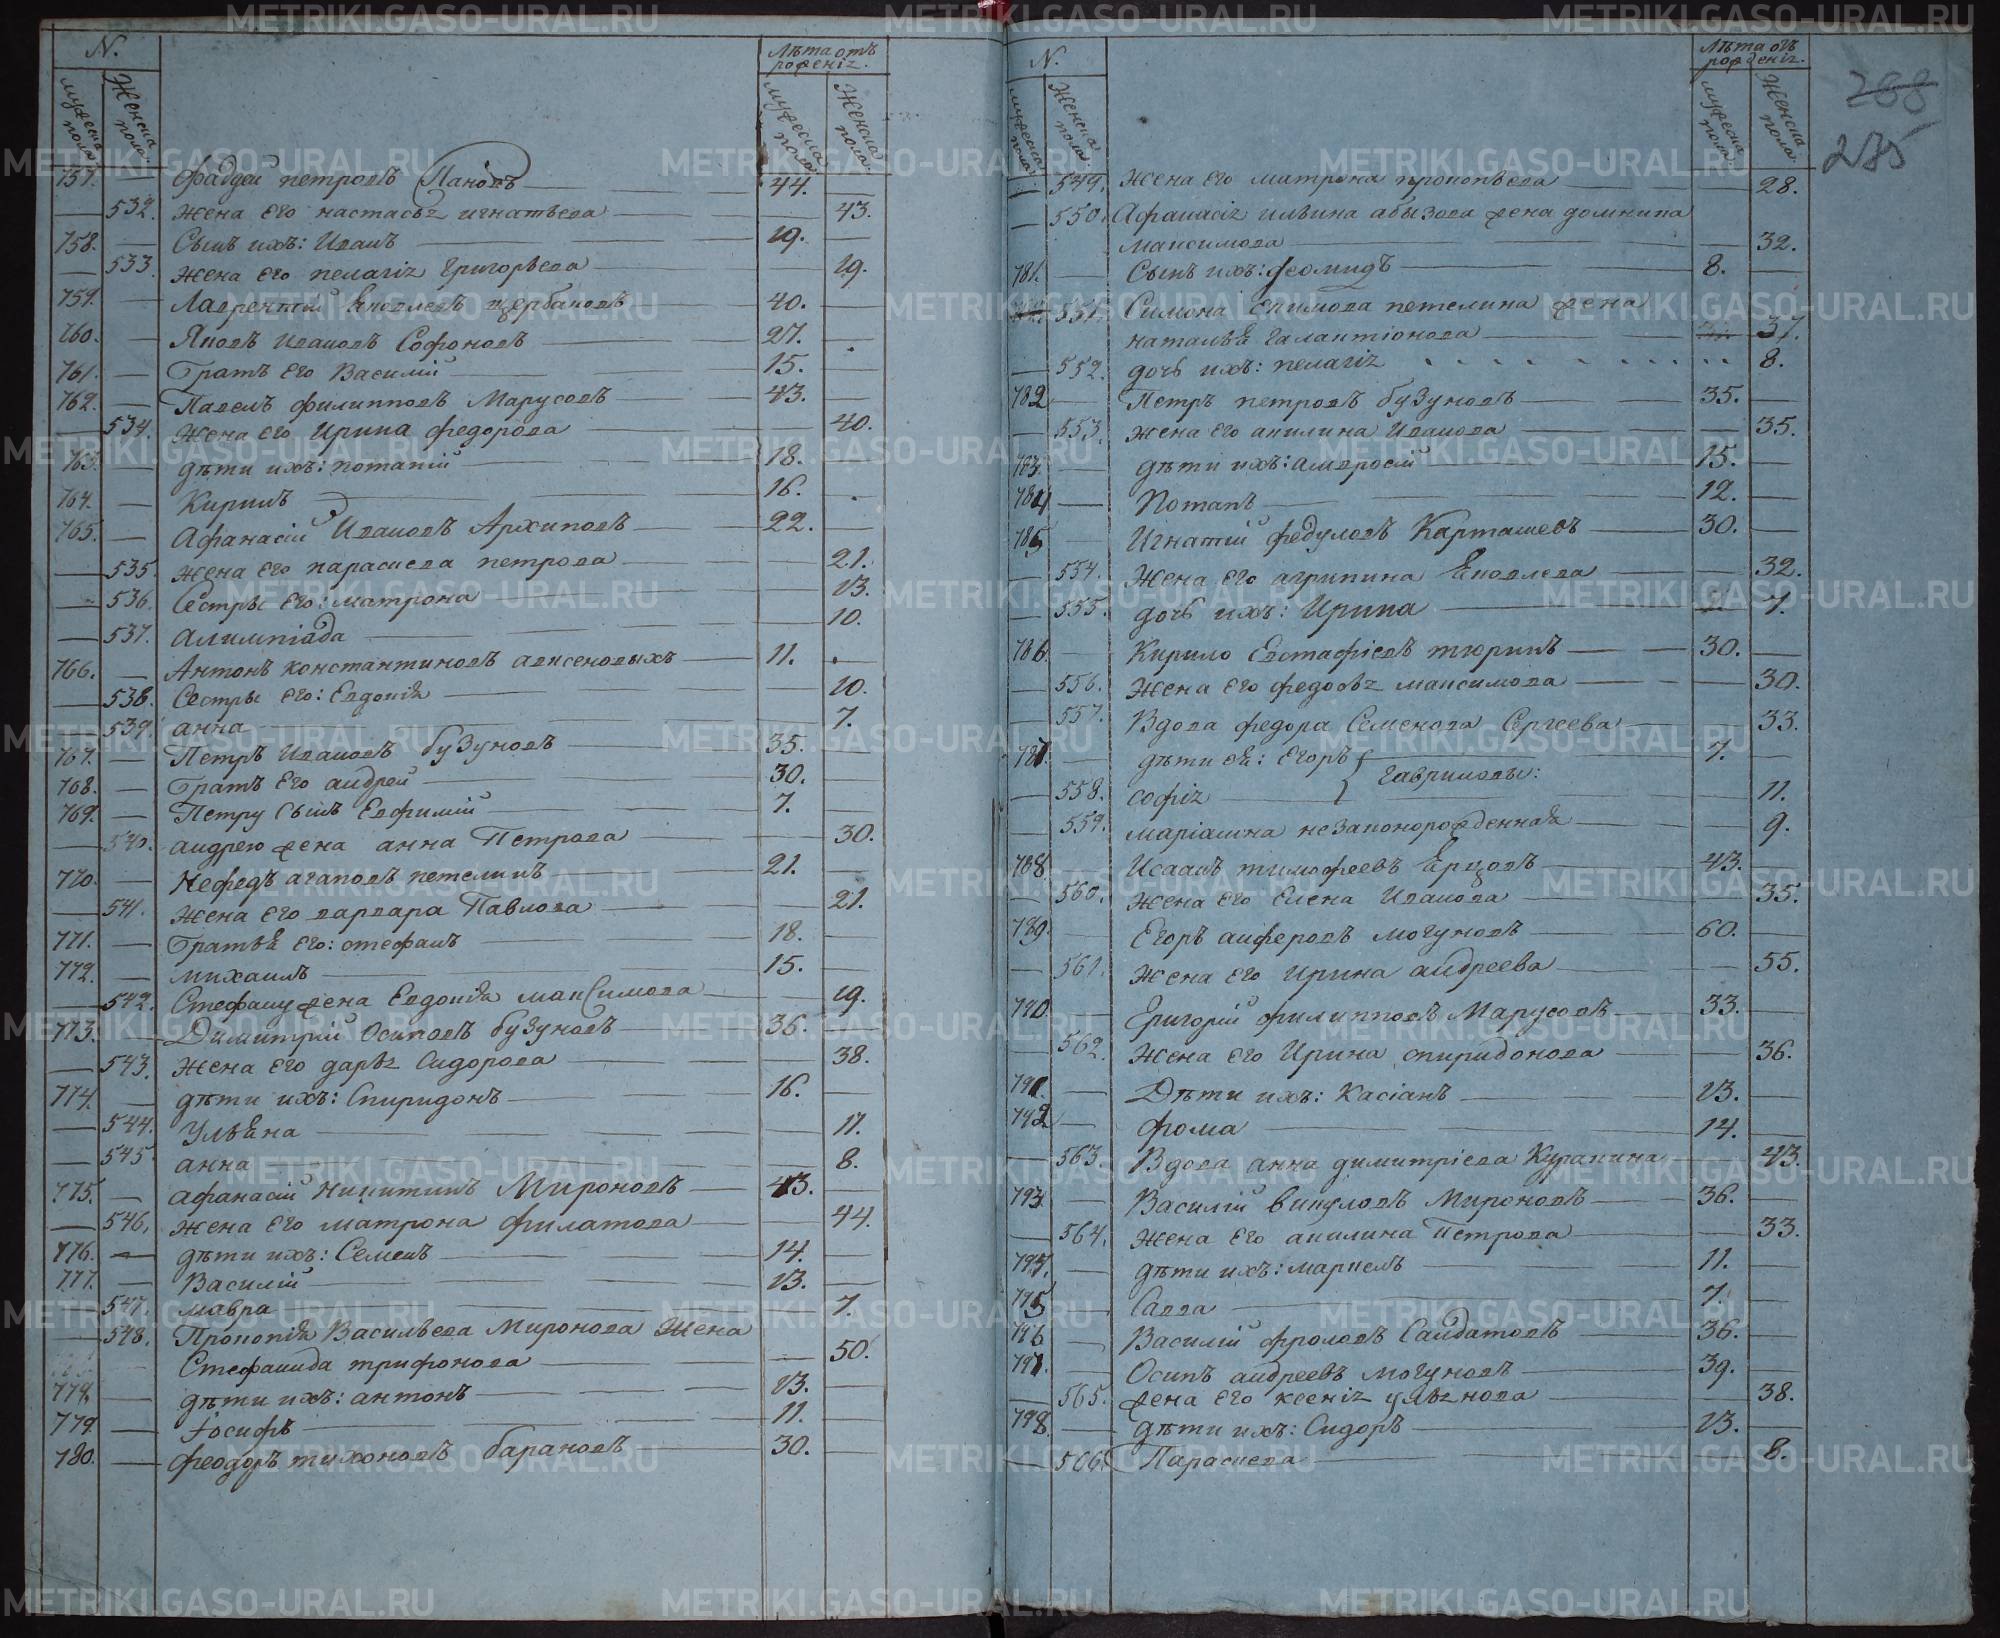 N.
Лѣта отъ рожденіz.
мужеска пола.
Женска пола.
мужеска пола
Женска пола.
757. — Фаддей петровъ Пановъ — 44.
532. Жена Его настасьz игнатьева — 43.
758. — Сынъ ихъ: Иванъ — 19. —
533. Жена Его пелагіz Григорьева — 19.
759. — Лаврентій Яковлевъ щербаковъ — 40. —
760. — Яковъ Ивановъ Софоновъ — 27. —
761. — Братъ Его Василій — 15. —
762. — Павелъ филипповъ Марусовъ — 43. —
534. Жена Его Ирина федорова — 40.
763. — дѣти ихъ: потапій — 18. —
764. — Кирилъ — 16. —
765. — Афанасій Ивановъ Архиповъ — 22. —
535. Жена Его параскева петрова — 21.
536. Сестры Его: матрона — 13.
537. алимпіада — 10.
766. — Антонъ константиновъ авксеновыхъ — 11. —
538. Сестры Его: Евдокія — 10.
539. анна — 7.
767. — Петръ Ивановъ бузуновъ — 35. —
768. — Братъ Его андрей — 30. —
769. — Петру сынъ Евфимій — 7. —
540. андрею жена анна Петрова — 30.
770. — Нефедъ агаповъ петелинъ — 21. —
541. Жена Его варвара Павлова — 21.
771. — Братья Его: стефанъ — 18. —
772. — михаилъ — 15. —
542. Стефану жена Евдокія максимова — 19.
773. — Димитрій Осиповъ бузуновъ — 36. —
543. Жена Его дарьz Сидорова — 38.
774. — дѣти ихъ: Спиридонъ — 16. —
544. Ульяна — 11.
545. анна — 8.
775. — афанасій Никитинъ Мироновъ — 43. —
546. жена Его матрона филатова — 44.
776. — дѣти ихъ: Семенъ — 14. —
777. — Василій — 13. —
547. мавра — 7.
548. Прокопія Васильева Миронова Жена
Стефанида трифонова — 50.
778. — дѣти ихъ: антонъ — 13. —
779. — Іосифъ — 11. —
780. — феодоръ тихоновъ барановъ — 30. —
N.
Лѣта отъ рожденіz.
мужеска пола
Женска пола.
мужеска пола
Женска пола.
288
285
549. Жена Его матрона прокопьева — 28.
550. Афанасіz ильина абызова жена домнина
максимова — 32.
781. — Сынъ ихъ: феомидъ — 8. —
551. Симона Екимова петелина жена
наталья галактіонова — 37.
552. дочь ихъ: пелагіz — 8.
782 — Петръ петровъ бузуновъ — 35. —
553. жена Его акилина Иванова — 35.
783. — дѣти ихъ: амвросій — 15. —
784 — Потапъ — 12. —
785 — Игнатій федуловъ Карташевъ — 30. —
554. Жена Его агрипина Яковлева — 32.
555. дочь ихъ: Ирина — 7.
786 — Кирило Евстафіевъ тюринъ — 30. —
556. Жена Его федосьz максимова — 30.
557. Вдова федора Семенова Сергеева — 33.
787. — дѣти ея: Егоръ — 7. —
Гавриловы:
558. софіz — 11.
559. маріамна незаконорожденная — 9.
788 — Исаакъ тимофеевъ Ерцовъ — 43. —
560. жена Его Елена Иванова — 35.
789. — Егоръ анферовъ могуновъ — 60. —
561. жена Его Ирина андреева — 55.
790. — Григорій филипповъ Марусовъ — 33. —
562. Жена Его Ирина спиридонова — 36.
791. — Дѣти ихъ: Касіанъ — 13. —
792 — фома — 14. —
563. Вдова анна димитріева Курапина — 43.
793. — Василій викуловъ Мироновъ — 36. —
564. Жена Его акилина Петрова — 33.
794. — дѣти ихъ: маркелъ — 11. —
795 — Савва — 7. —
796 — Василій фроловъ Салдатовъ — 36. —
797. — Осипъ андреевъ могуновъ — 39. —
565. жена Его ксеніz ульzнова — 38.
798 — дѣти ихъ: Сидоръ — 13. —
566. Параскева — 8.